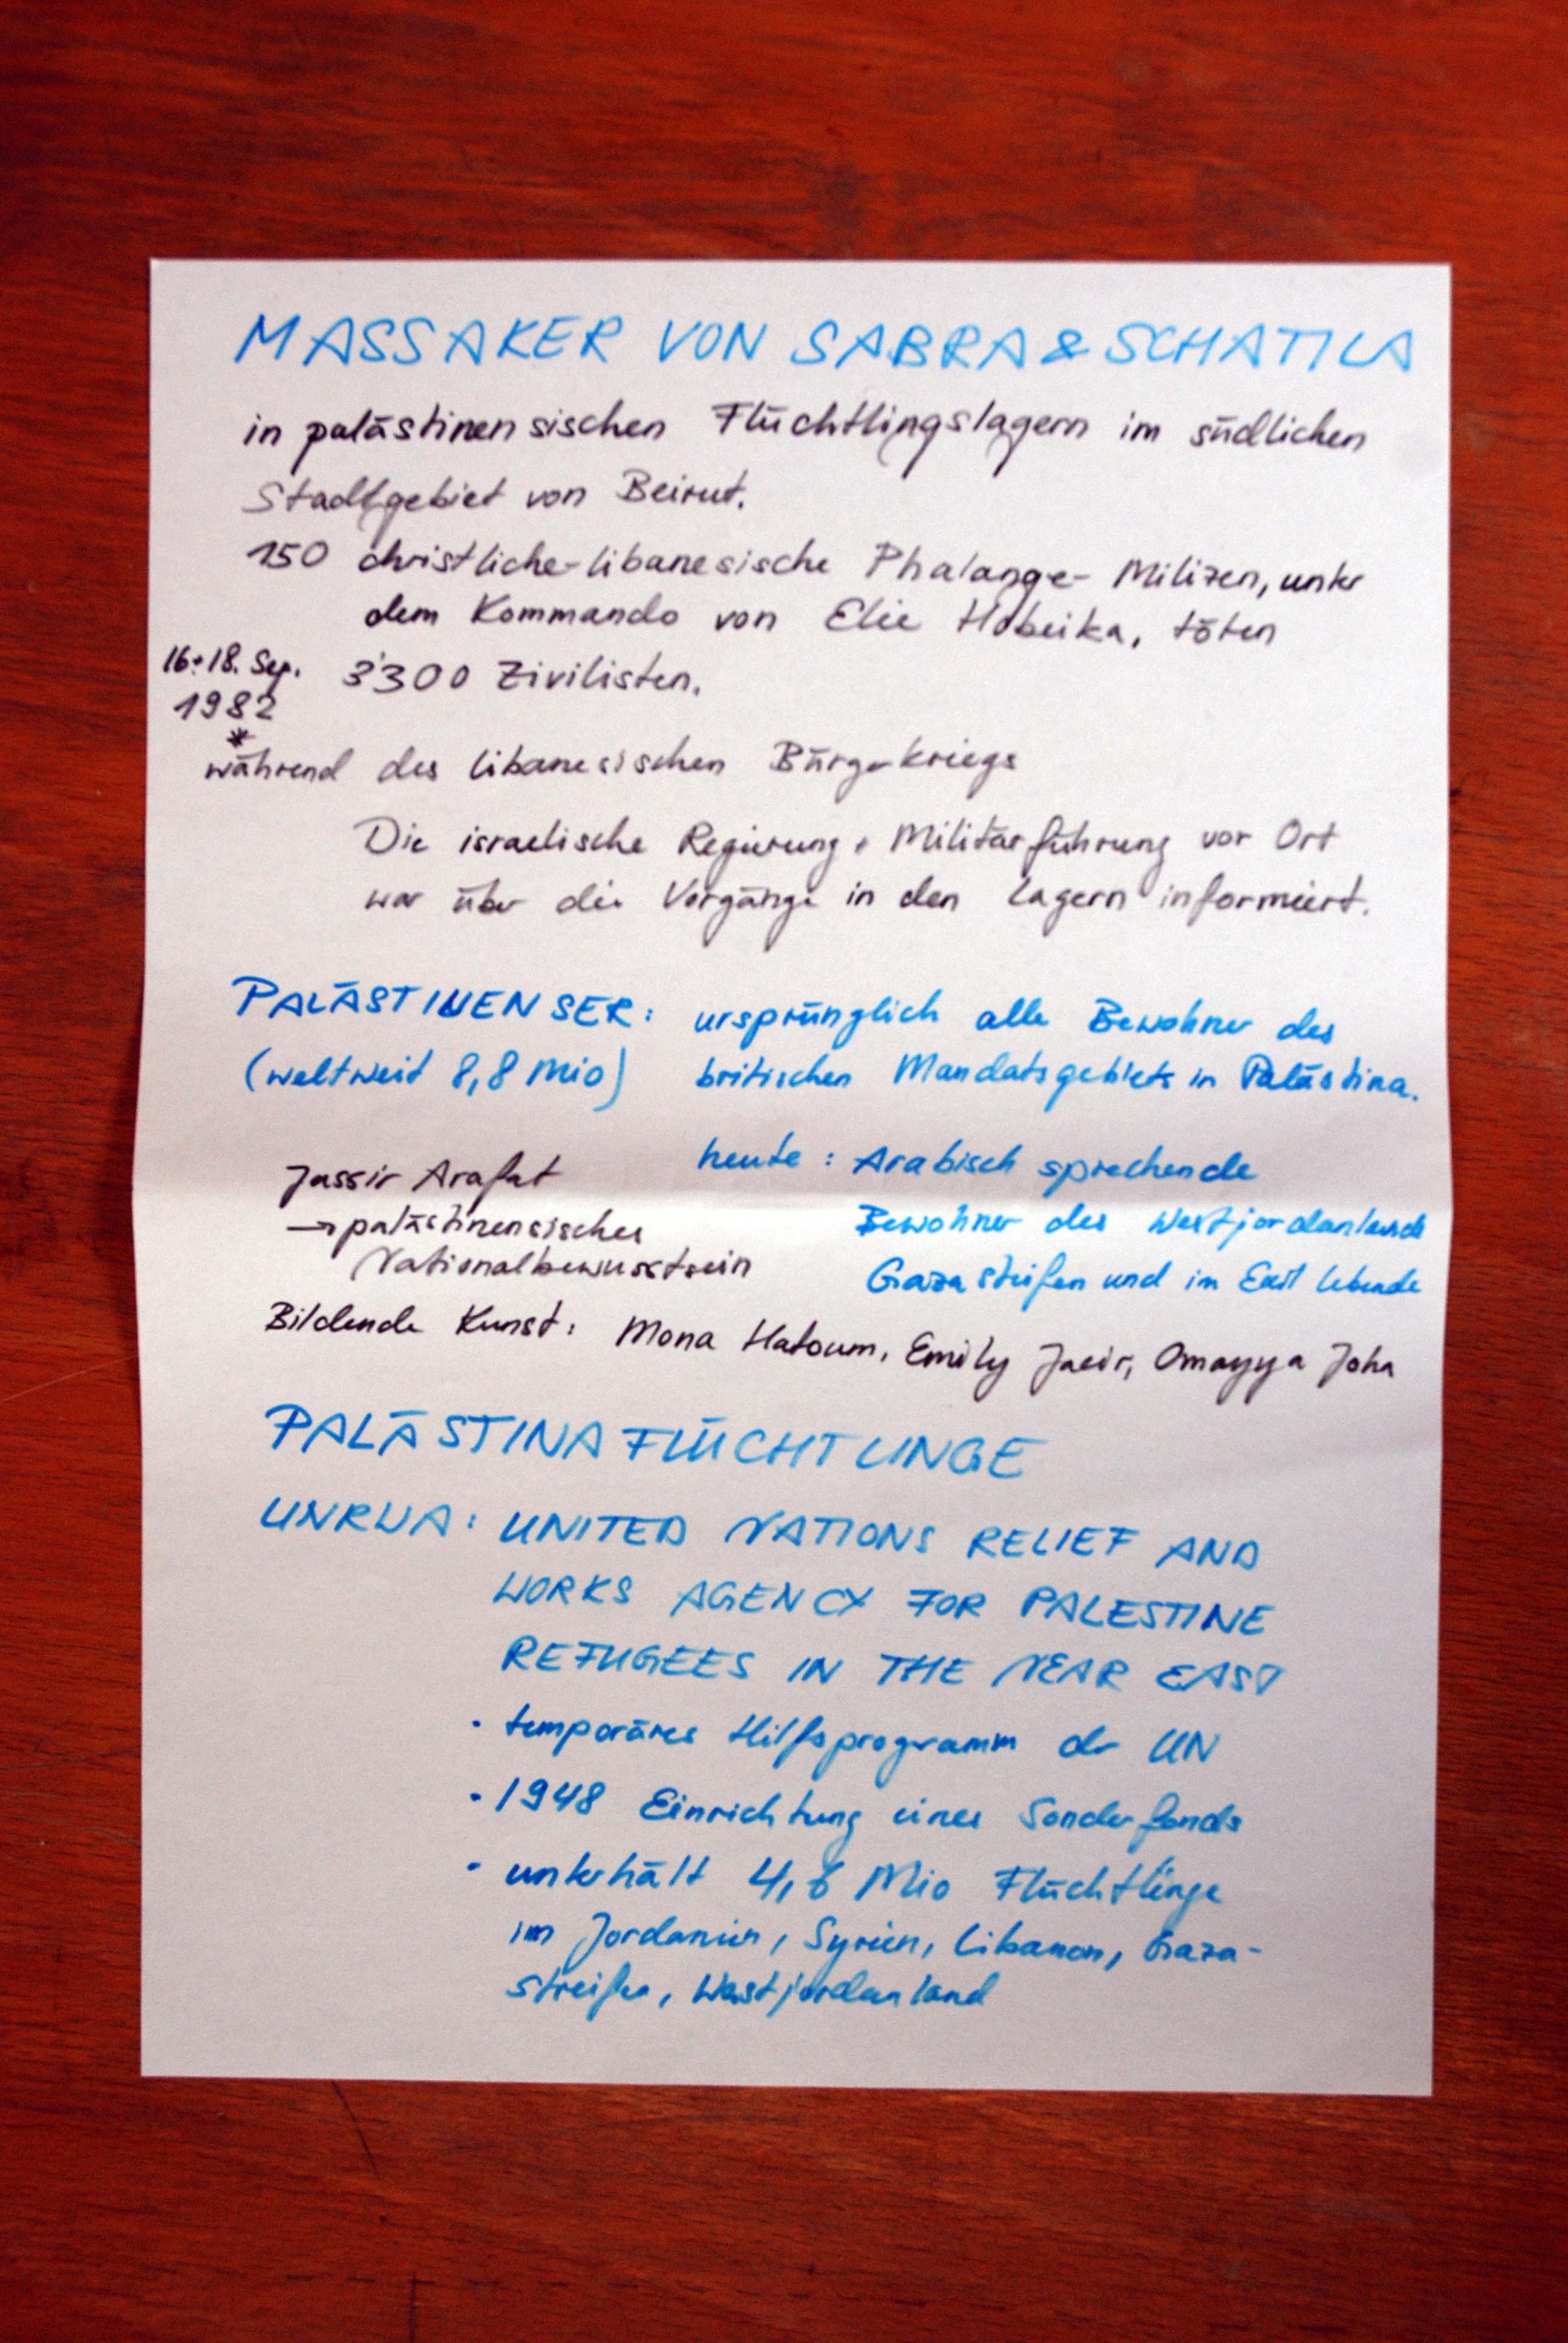 MASSAKER VON SABRA & SCHATILA
in palästinensischen Flüchtlingslagern im südlichen
Stadtgebiet von Beirut.
150 christliche-libanesische Phalange-Milizen, unter
dem Kommando von Elie Hobeika, töten
16.-18. Sep. 3'300 Zivilisten.
1982
*
während des libanesischen Bürgerkriegs
Die israelische Regierung + Militärführung vor Ort
war über die Vorgänge in den Lagern informiert.
PALÄSTINENSER: ursprünglich alle Bewohner des
(weltweit 8,8 Mio) britischen Mandatsgebiets in Palästina.
heute: Arabisch sprechende
Bewohner des Westjordanlands
Gazastreifen und im Exil lebende
Jassir Arafat
→ palästinensisches
Nationalbewusstsein
Bildende Kunst: Mona Hatoum, Emily Jacir, Omayya Joha
PALÄSTINAFLÜCHTLINGE
UNRWA: UNITED NATIONS RELIEF AND
WORKS AGENCY FOR PALESTINE
REFUGEES IN THE NEAR EAST
· temporäres Hilfsprogramm der UN
· 1948 Einrichtung eines Sonderfonds
· unterhält 4,6 Mio Flüchtlinge
im Jordanien, Syrien, Libanon, Gaza-
streifen, Westjordanland